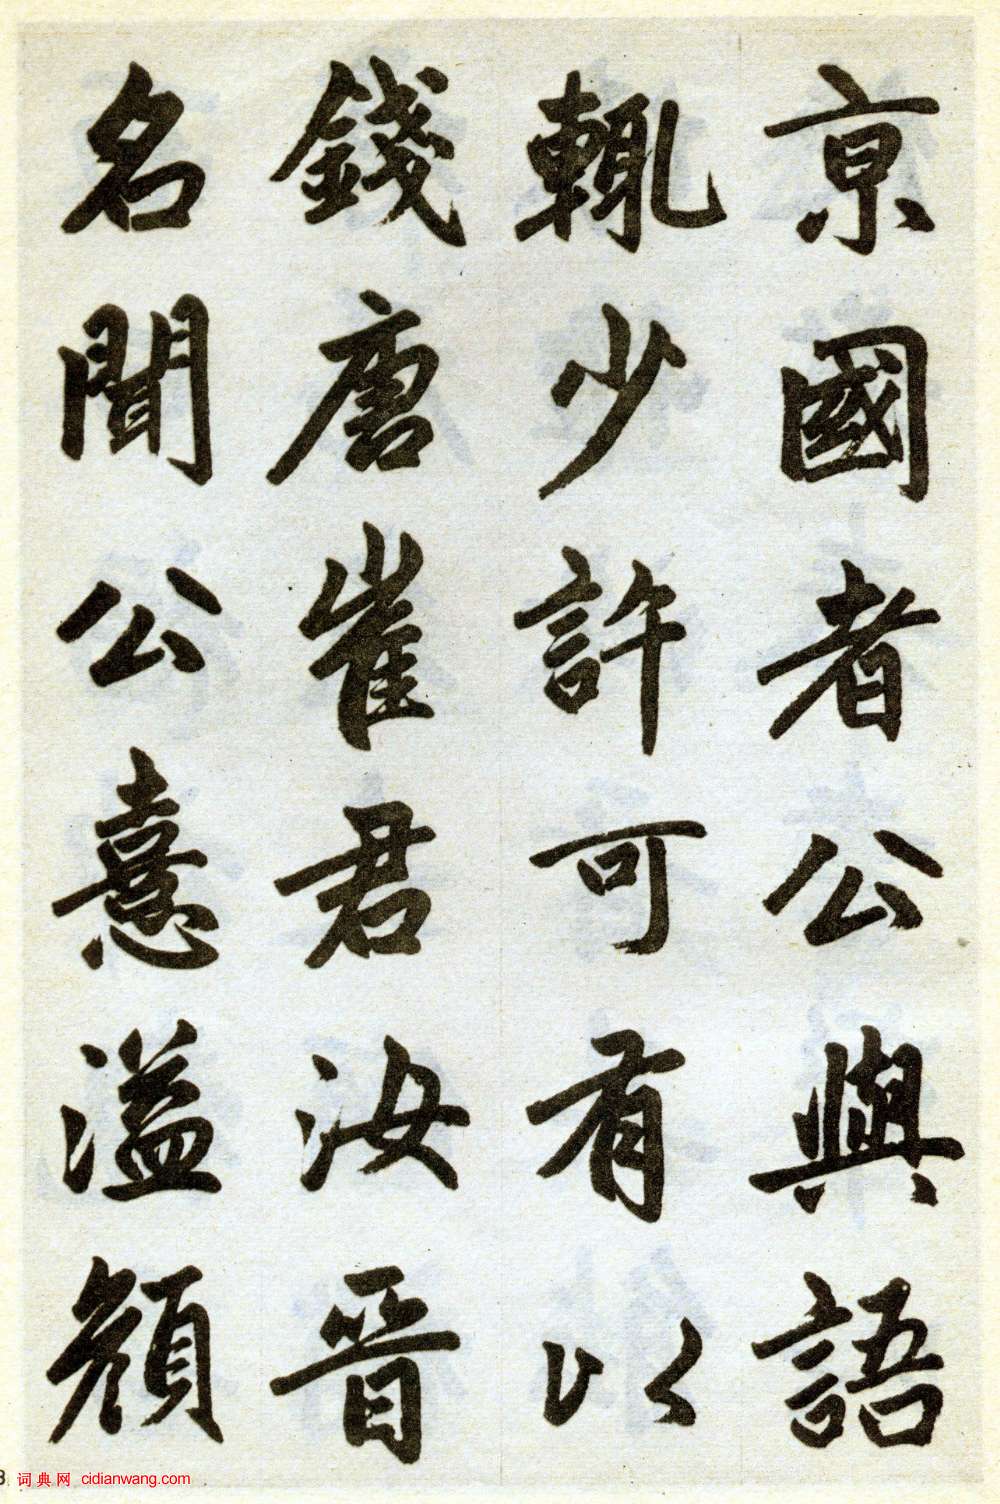 京國者公與語
輒少許可有以
錢唐崔君汝晋
名聞公憙溢顔
8 词典网 cidianwang.com